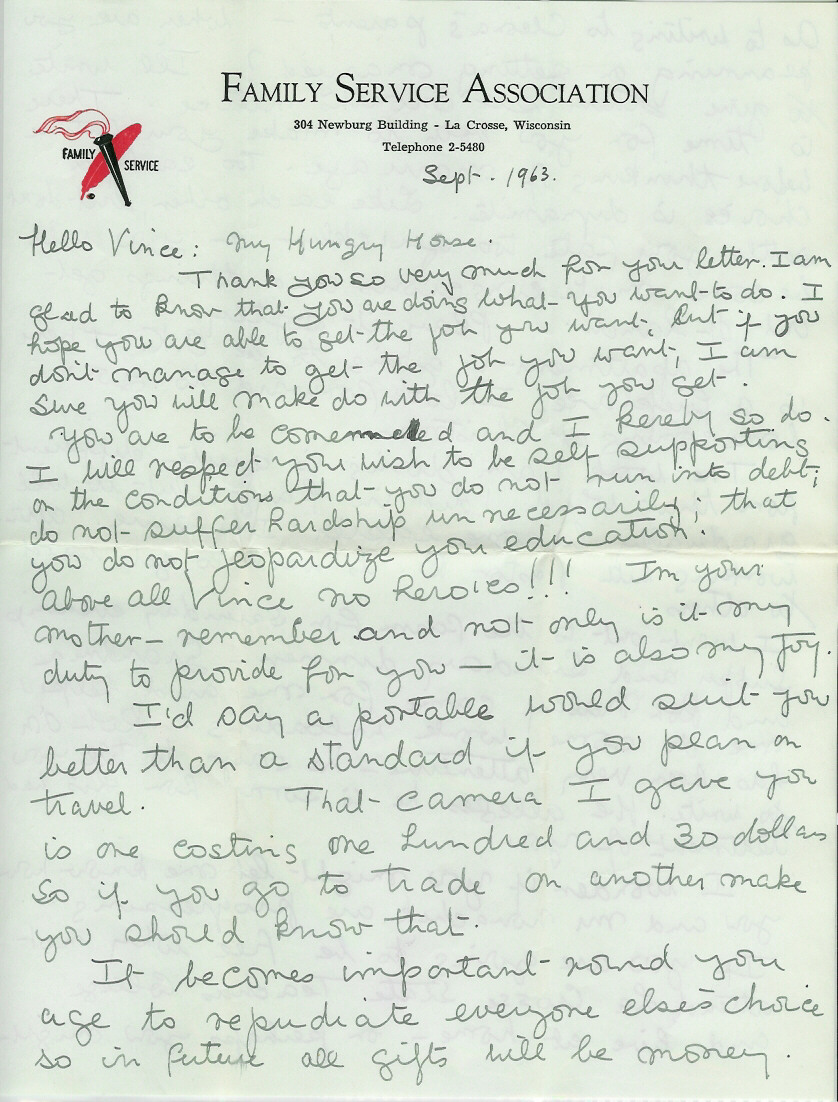 FAMILY SERVICE ASSOCIATION
304 Newburg Building - La Crosse, Wisconsin
Telephone 2-5480
FAMILY SERVICE
Sept. 1963.
Hello Vince: My Hungry Horse.
Thank you so very much for your letter. I am
glad to know that you are doing what you want to do. I
hope you are able to get the job you want, but if you
don't manage to get the job you want, I am
sure you will make do with the job you get.
You are to be and I hereby so do.
I will respect your wish to be self supporting
on the conditions that you do not run into debt;
do not suffer hardship unnecessarily; that
you do not jeopardize your education.
Above all Vince no heroics!!! Im your
mother - remember and not only is it my
duty to provide for you - it is also my joy.
I'd say a portable would suit you
better than a standard if you plan on
travel. That camera I gave you
is one costing one hundred and 30 dollars
so if you go to trade on another make
you should know that.
It becomes important round your
age to repudiate everyone else's choice
so in future all gifts will be money.